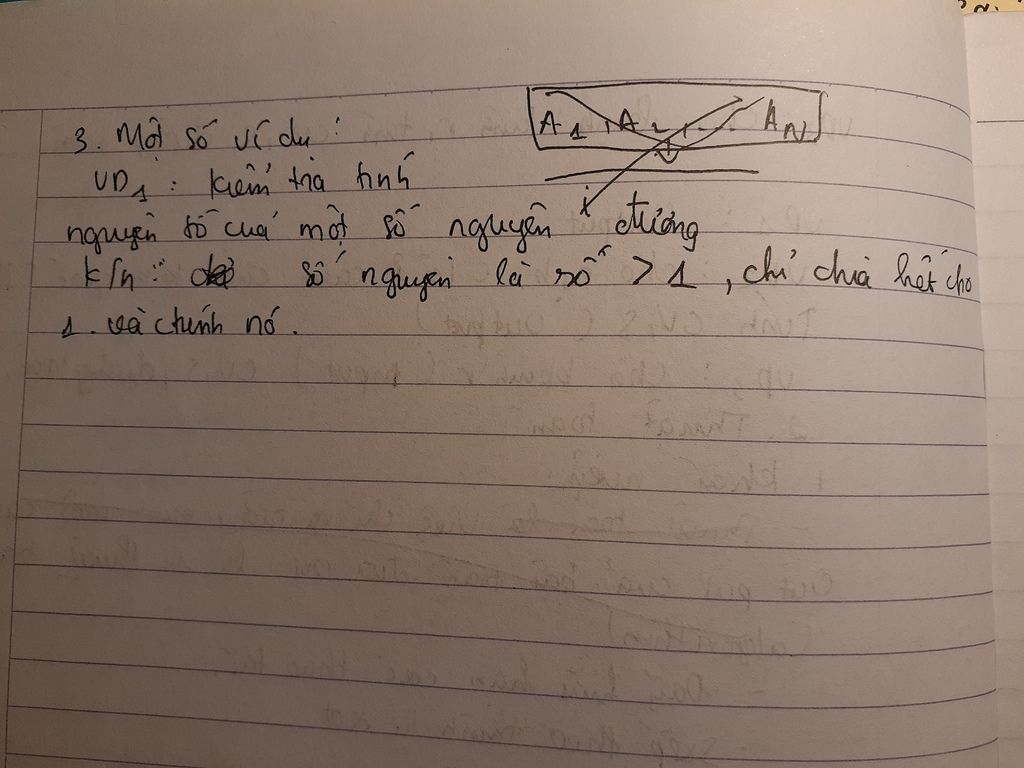 3. Một số ví dụ:
A1, A2, ... AN
VD1: Kiểm tra tính
nguyên tố của một số nguyên dương
k/n: số nguyên là số > 1, chỉ chia hết cho
1 và chính nó.